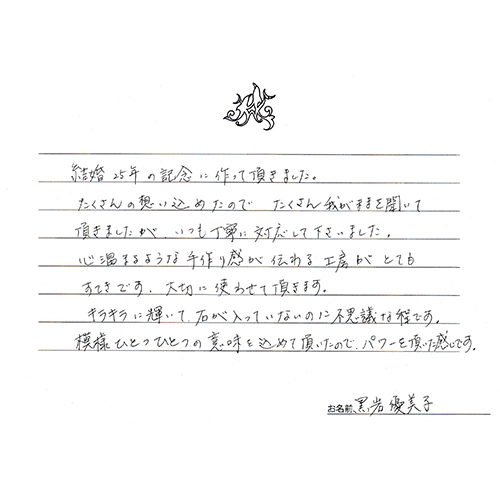 結婚25年の記念に作って頂きました。
たくさんの想い込めたので たくさん我がままを聞いて
頂きましたが、いつも丁寧に対応して下さいました。
心温まるような手作り感が伝わる工房がとても
すてきです。大切に使わせて頂きます。
キラキラに輝いて、石が入っていないのに不思議な程です。
模様ひとつひとつの意味を込めて頂いたので、パワーを頂いた感じです。
お名前、黒岩優美子